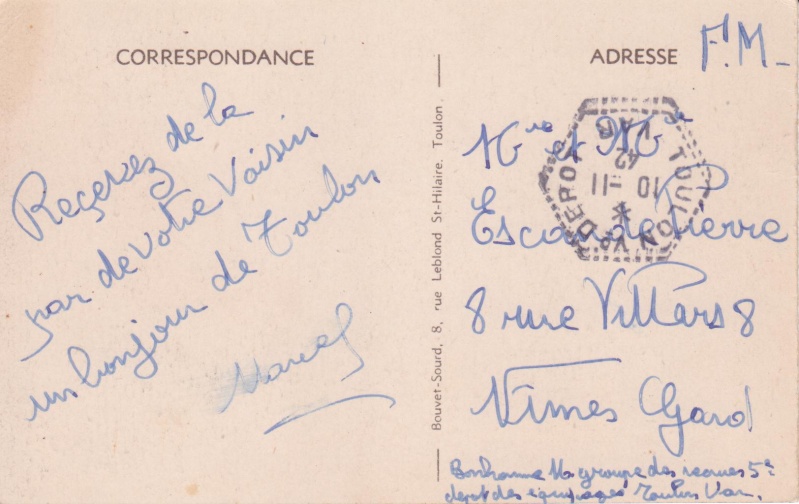 CORRESPONDANCE
Reçevez de la
par de votre Voisin
un bonjour de Toulon
Marcel
Bouvet-Sourd, 8, rue Leblond St-Hilaire. Toulon
ADRESSE
F.M_
TOULON VAR
DEPOT
10 - 11
42
Mre et Mme
Escande Pierre
8 rue Villars 8
Nîmes Gard
groupe des recrues 5e
depot des équipages Toulon Var.